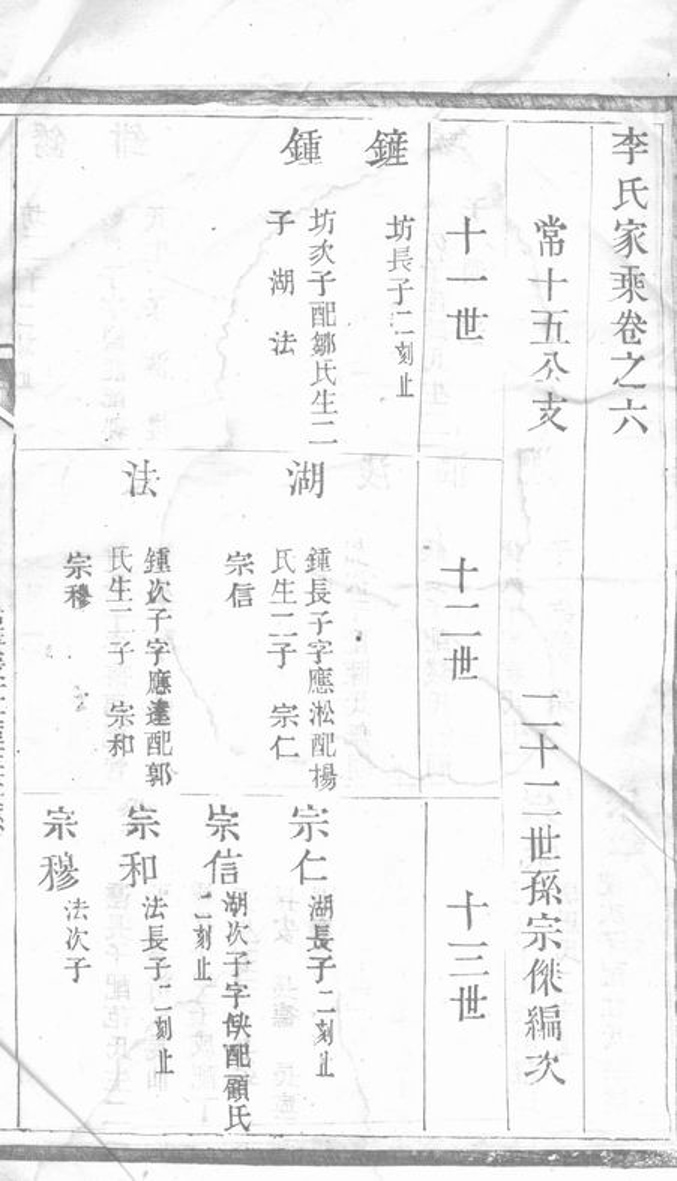 李氏家乘卷之六
常十五公支
二十二世孫宗傑編次
十一世
鏟
坊長子二刻止
鍾
坊次子配鄒氏生二
子 湖 法
十二世
湖
鍾長子字應淞配楊
氏生二子 宗仁
宗信
法
鍾次子字應達配郭
氏生二子 宗和
宗穆
十三世
宗仁
湖長子二刻止
宗信
湖次子字缺配顧氏
二刻止
宗和
法長子二刻止
宗穆
法次子